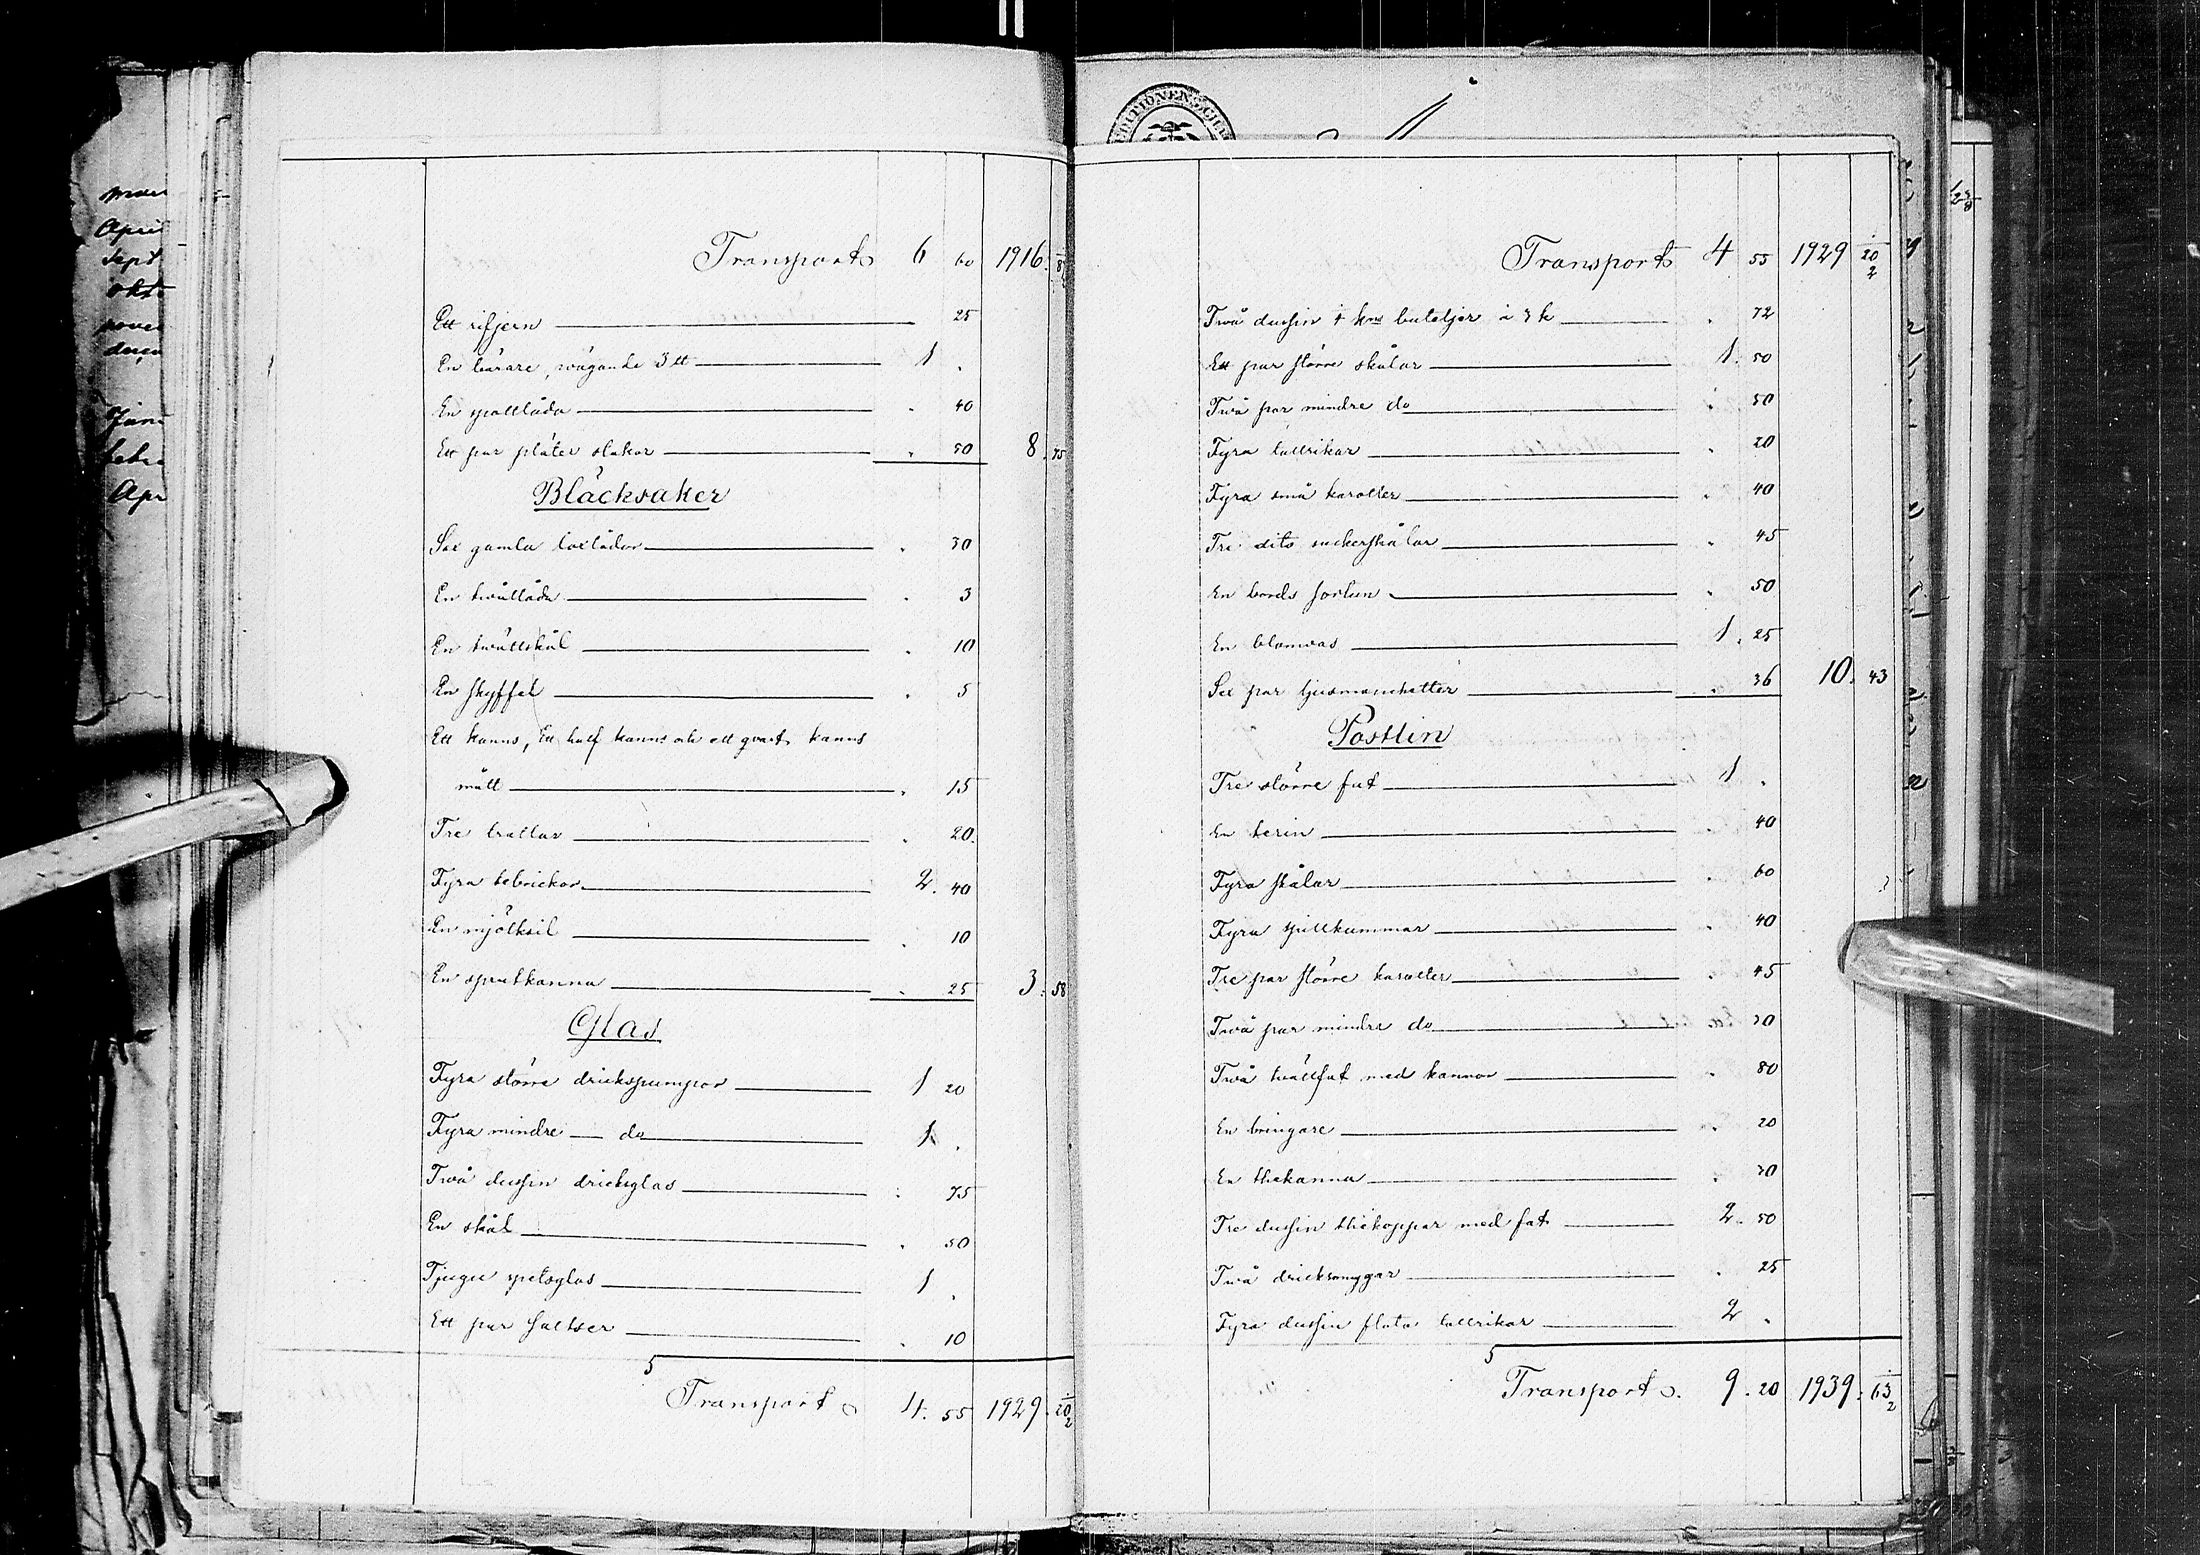 Transport 6 60 1916.
Ett rifjern 25
En bärare, vägande 3 ℔ 1 .
En spottlåda . 40
Ett par pläter stakar . 50 8. 75
Bläcksaker
Sex gamla . 30
En tvållåda . 3
En tvättskål . 10
En skyffel . 5
Ett kanns, Ett half kanns och ett qvart kanns
mått . 15
Tre trattar . 20.
Fyra tebrickor 2. 40
En mjölksil . 10
En sprutkanna . 25 3. 58
Glas
Fyra större drickspumpor 1 20
Fyra mindre — do 1 .
Två dussin dricksglas . 75
En skål . 50
Tjugu spetsglas 1 .
Ett par saltser . 10
Transport 4. 55 1929. 20
Transport 4 55 1929 20
Två dussin buteljer à 3 k . 72
Ett par större skålar 1. 50
Två par mindre do . 50
Fyra tallrikar . 20
Fyra små karotter . 40
Tre dito sockerskålar . 45
En bords . 50
En blomvas 1. 25
Sex par ljusmanchetter . 36 10. 43
Postlin
Tre större fat 1 .
En terin . 40
Fyra skålar . 60
Fyra spillkummar . 40
Tre par större karotter . 45
Två par mindre do . 30
Två tvättfat med kannor . 80
En bringare . 20
En thekanna . 30
Tre dussin thékoppar med fat 2. 50
Två dricksmuggar . 25
Fyra dussin flata tallrikar 2 .
Transport 9. 20 1939. 63